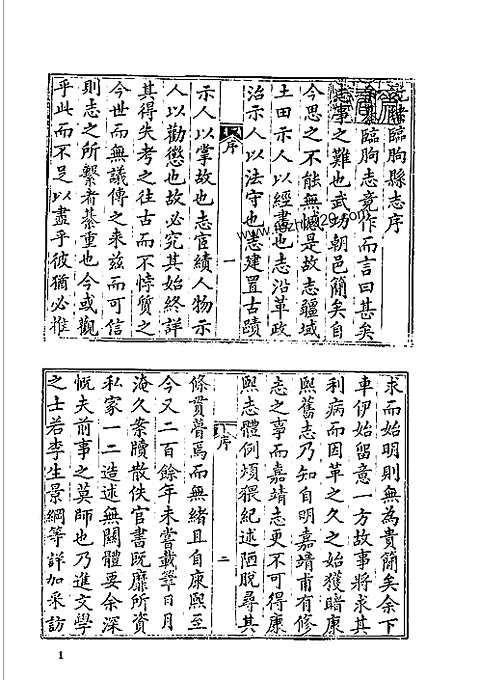 光緒臨朐縣志序
余纂臨朐志竟作而言曰甚矣
志事之難也武功朝邑簡矣自
今思之不能無憾是故志疆域
土田示人以經畫也志沿革政
治示人以法守也志建置古蹟
序
一
示人以掌故也志宦績人物示
人以勸懲也故必究其始終詳
其得失考之往古而不悖質之
今世而無議傳之來茲而可信
則志之所繫者綦重也今或觀
乎此而不足以盡乎彼猶必推
求而始明則無為貴簡矣余下
車伊始留意一方故事將求其
利病而因革之久之始獲睹康
熙舊志乃知自明嘉靖甫有修
志之事而嘉靖志更不可得康
熙志體例煩猥紀述陋脫尋其
序
二
條貫瞢焉而無緒且自康熙至
今又二百餘年未嘗載筆日月
淹久案牘散佚官書既靡所資
私家一二造述無關體要余深
慨夫前事之莫師也乃進文學
之士若李生景綱等詳加采訪
1